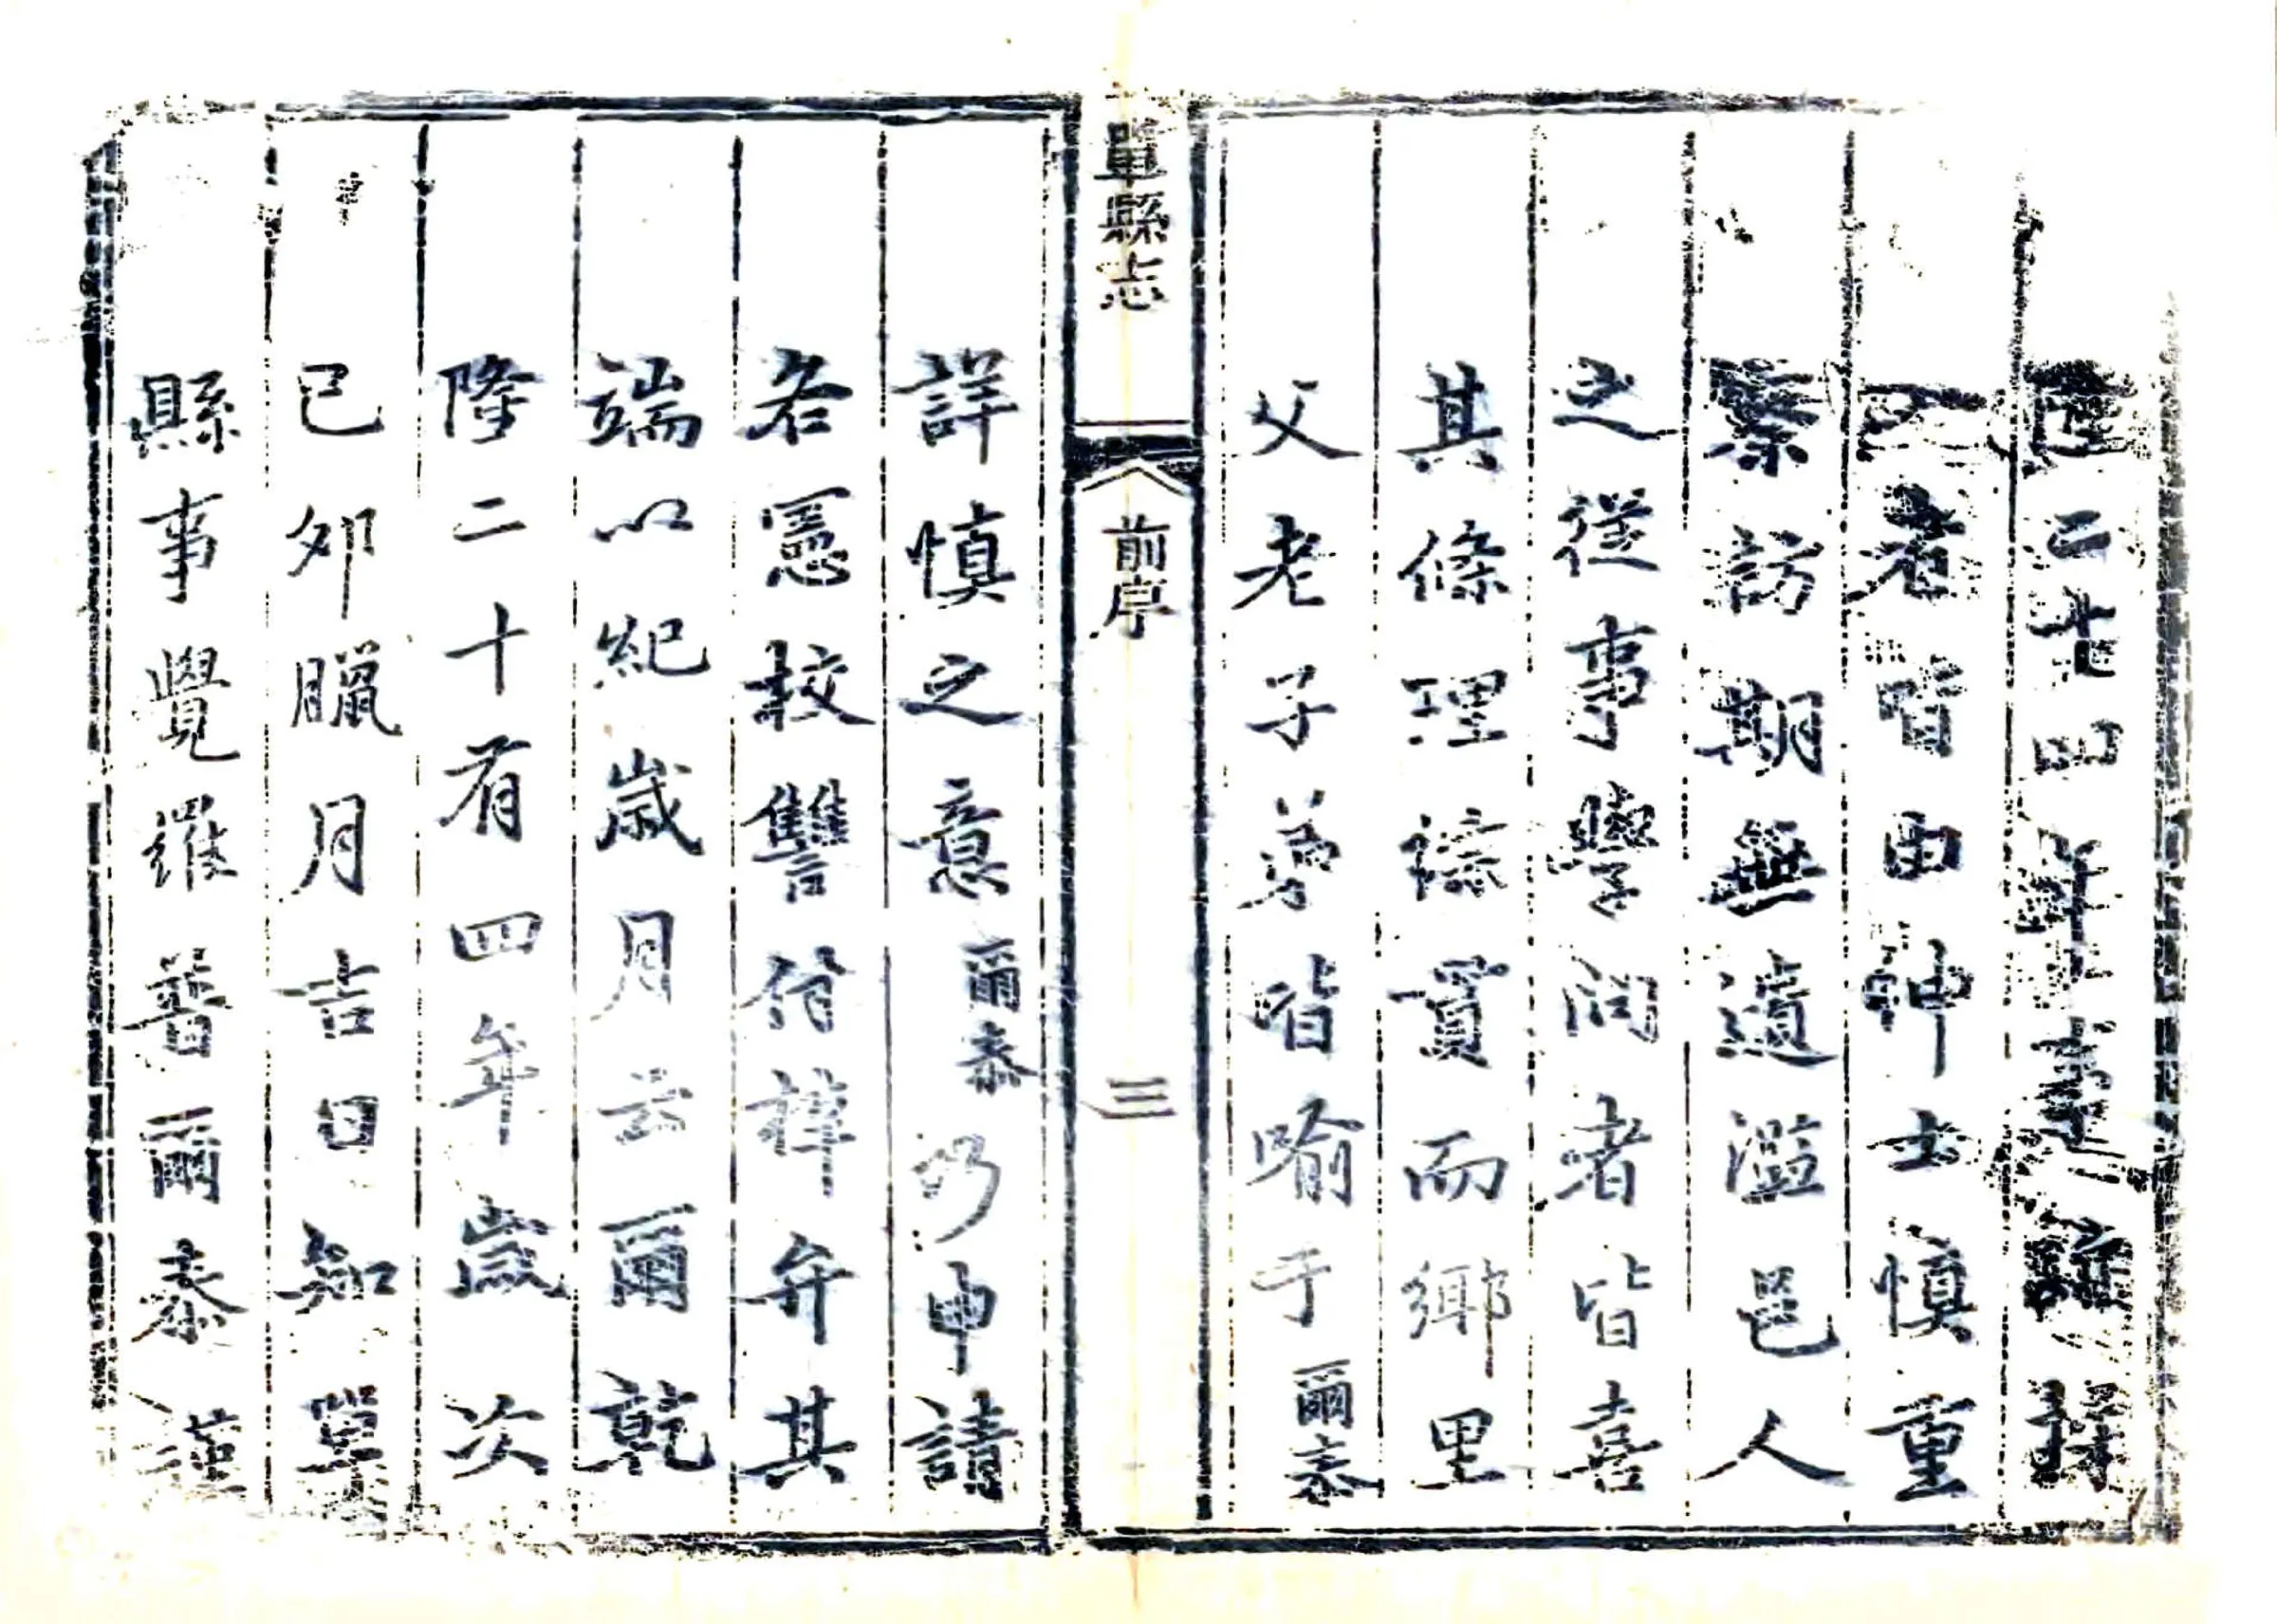 四年
者皆由紳士慎重
察訪期無遺濫邑人
之從事學問者皆喜
其條理綜貫而鄉里
父老子弟皆喻于爾泰
單縣志 前序 三
詳慎之意爾泰乃申請
各憲校讐付梓弁其
端以紀歲月云爾乾
隆二十有四年歲次
己卯臘月吉日知單
縣事覺羅普爾泰謹